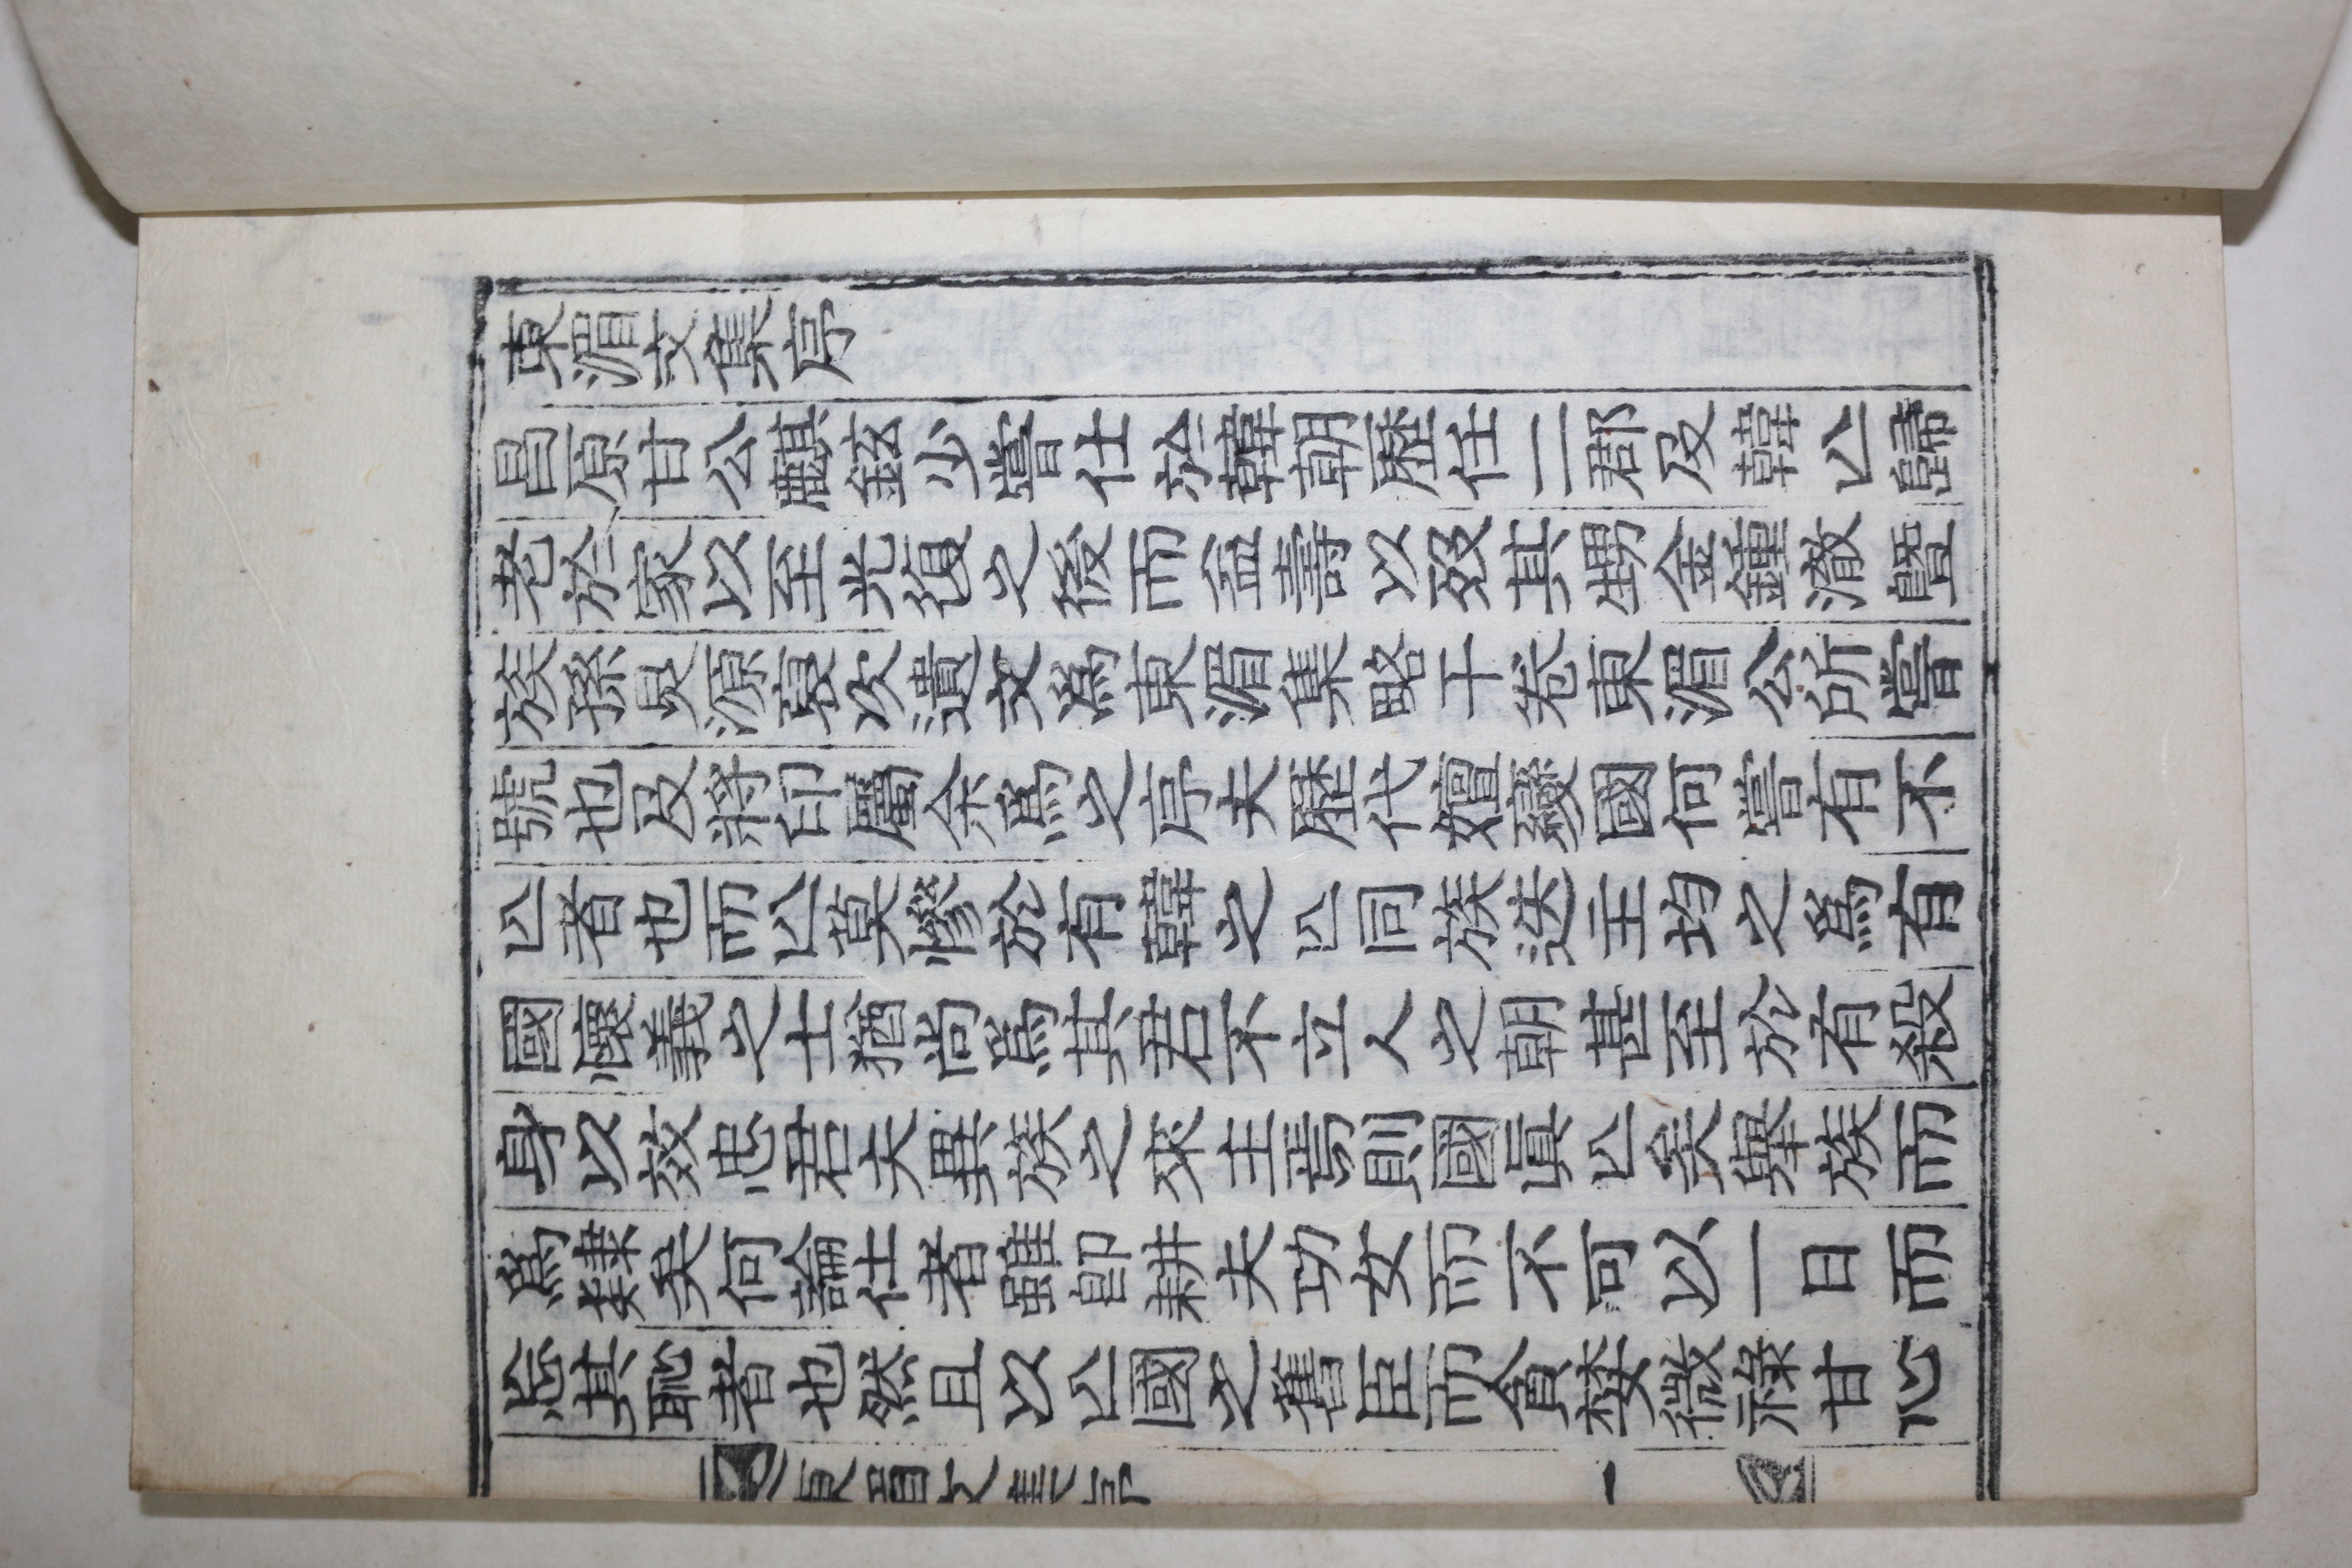 東湄文集序
昌原甘公麒鉉少嘗仕於韓朝歷任二郡及韓亾歸
老於家以至光復之後而益壽以歿其甥金鍾澈曁
族孫炅源裒次遺文爲東湄集略干卷東湄公所嘗
號也及將印屬余爲之序夫歷代嬗變國何嘗有不
亾者也而亾莫慘於有韓之亾同族迭主均之爲有
國懷義之士猶尚爲其君不立人之朝甚至於有殺
身以效忠君夫異族之來主焉則國眞亾矣擧族而
爲隷矣何論仕者雖卽耕夫功女而不可以一日而
忘其恥者也然且以亾國之舊臣而貪婪微祿甘心
東湄文集序
一